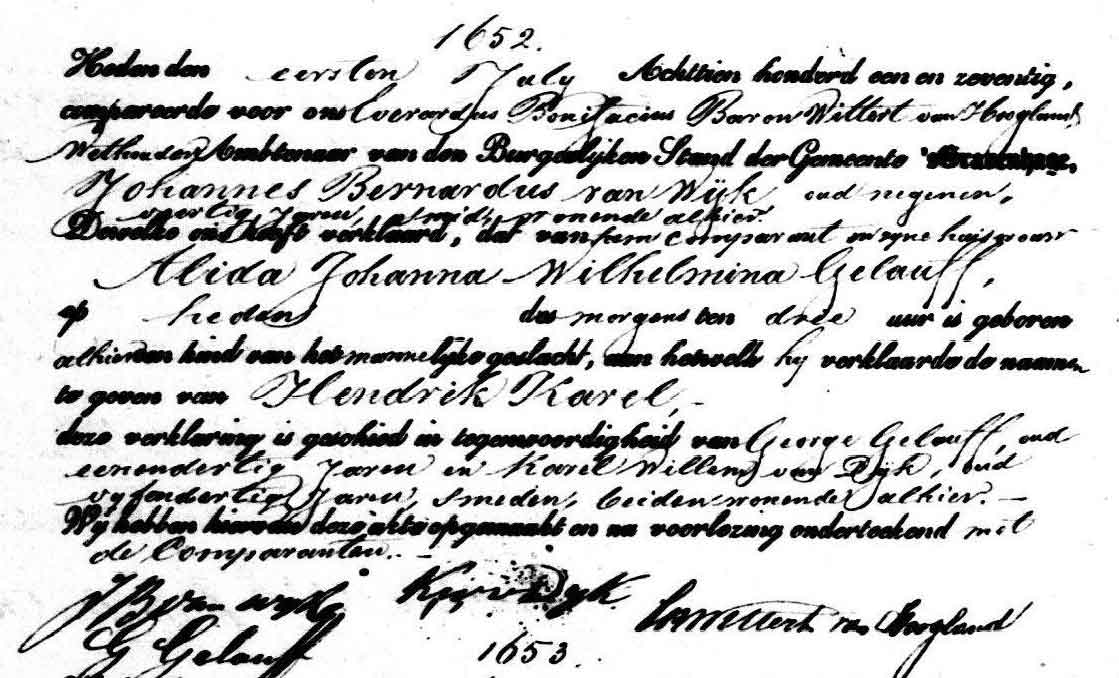 1652.
Heden den eersten July Achttien honderd een en zeventig,
compareerde voor ons Everardus Bonifacius Baron Wittert van Hoogland
Wethouder, Ambtenaar van den Burgerlijken Stand der Gemeente
Johannes Bernardus van Wijk oud negenen,
veertig Jaren, smid, wonende alhier.
Dewelke ons heeft verklaard, dat van hem Comparant en zyne huisvrouw
Alida Johanna Wilhelmina Gelauff,
op heden des morgens ten drie uur is geboren
alhier een kind van het mannelijke geslacht, aan hetwelk hy verklaarde de naamen
te geven van Hendrik Karel, –
deze verklaring is geschied in tegenwoordigheid van George Gelauff, oud
eenendertig Jaren en Karel Willem van Dijk, oud
vyfendertig Jaren, smeden, beiden wonende alhier. –
Wij hebben hiervan deze akte opgemaakt en na voorlezing onderteekend met
de Comparanten. –
JB van Wijk K W v Dyk
Wittert van Hoogland
G Gelauff 1653.